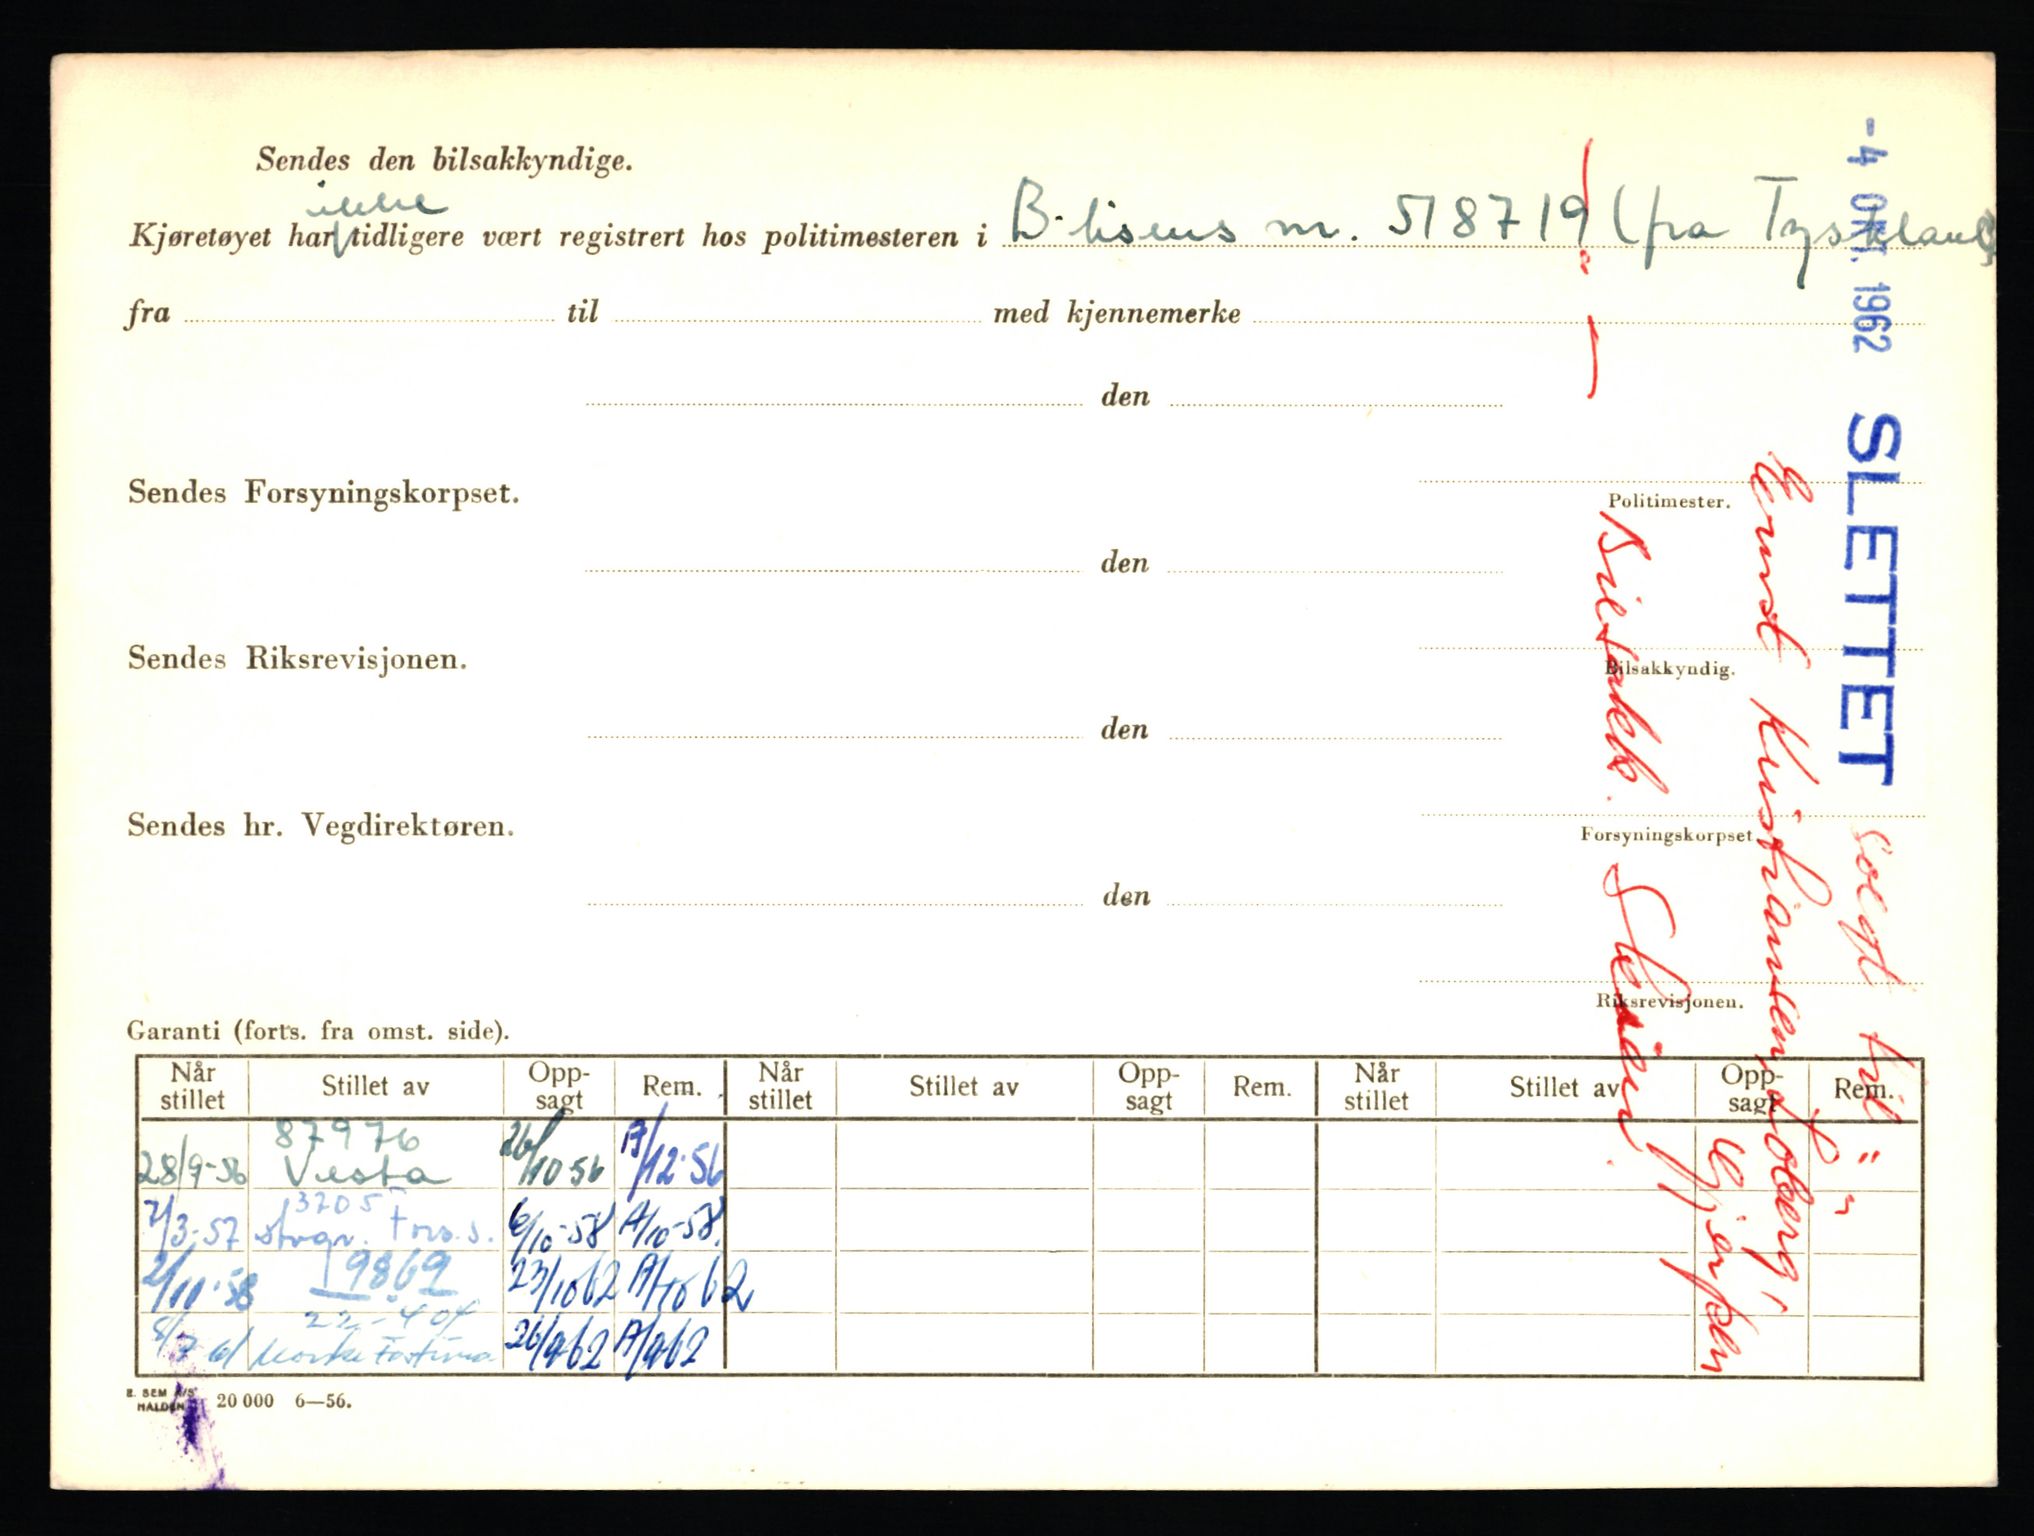 Sendes den bilsakkyndige.
ikke
Kjøretøyet har tidligere vært registrert hos politimesteren i B-lisens nr. 518719 (fra Tyskland)
fra til med kjennemerke
den
Politimester.
Sendes Forsyningskorpset.
den
Bilsakkyndig.
Sendes Riksrevisjonen.
den
Forsyningskorpset.
Sendes hr. Vegdirektøren.
den
Riksrevisjonen.
-4 OKT. 1962 SLETTET solgt til
Ernst Kristiansen, Solberg,
Gjerpen
Bilsakk. Skien.
Garanti (forts. fra omst. side).
Når stillet Stillet av Opp-sagt Rem. Når stillet Stillet av Opp-sagt Rem. Når stillet Stillet av Opp-sagt Rem.
87976
28/9-56 Vesta 26/10 56 A/12-56
3705
7/3-57 Stvgr. Fors.s. 6/10-58 A/10-58.
2/10-58 19869 23/10 62 A/10 62
8/7 61 Norske Fortuna 26/9 62 A/9 62
E. SEM A/S
HALDEN 20 000 6—56.